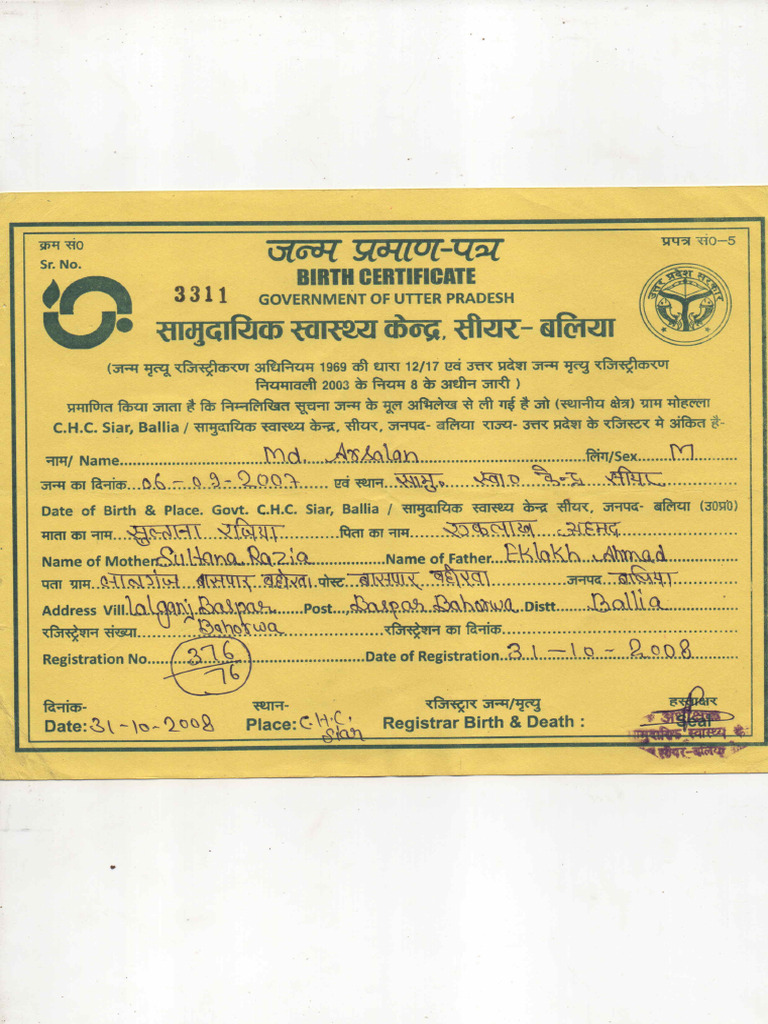 क्रम सं0 जन्म प्रमाण-पत्र प्रपत्र सं0-5
Sr. No. BIRTH CERTIFICATE
3311 GOVERNMENT OF UTTER PRADESH
उत्तर प्रदेश सरकार
सामुदायिक स्वास्थ्य केन्द्र, सीयर- बलिया
(जन्म मृत्यू रजिस्ट्रीकरण अधिनियम 1969 की धारा 12/17 एवं उत्तर प्रदेश जन्म मृत्यु रजिस्ट्रीकरण
नियमावली 2003 के नियम 8 के अधीन जारी )
प्रमाणित किया जाता है कि निम्नलिखित सूचना जन्म के मूल अभिलेख से ली गई है जो (स्थानीय क्षेत्र) ग्राम मोहल्ला
C.H.C. Siar, Ballia / सामुदायिक स्वास्थ्य केन्द्र, सीयर, जनपद- बलिया राज्य- उत्तर प्रदेश के रजिस्टर मे अंकित है-
नाम/ Name Md. Arsalan लिंग/Sex. M
जन्म का दिनांक 06-09-2007 एवं स्थान सामु. स्वा0 केन्द्र सीयर
Date of Birth & Place. Govt. C.H.C. Siar, Ballia / सामुदायिक स्वास्थ्य केन्द्र सीयर, जनपद- बलिया (उ0प्र0)
माता का नाम सुल्ताना रजिया पिता का नाम एकलाख अहमद
Name of Mother Sultana Razia Name of Father Eklakh Ahmad
पता ग्राम लालगंज बासपार बहोरवा पोस्ट बासपार बहोरवा जनपद बलिया
Address Vill. Lalganj Baspar Post Baspar Bahorwa Distt Ballia
रजिस्ट्रेशन संख्या Bahorwa रजिस्ट्रेशन का दिनांक
Registration No. 376/76 Date of Registration 31-10-2008
दिनांक- स्थान- रजिस्ट्रार जन्म/मृत्यु हस्ताक्षर
Date: 31-10-2008 Place: C.H.C. Siar Registrar Birth & Death : Seal
अधीक्षक
सामुदायिक स्वास्थ्य के
सीयर-बलिया